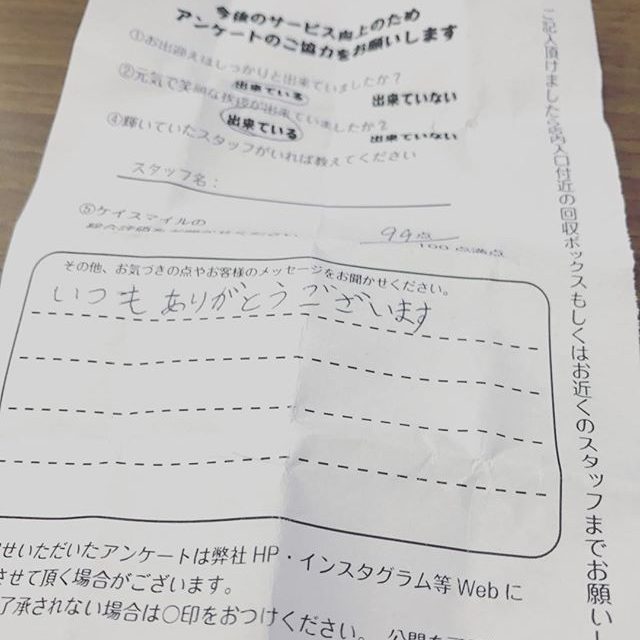 今後のサービス向上のため
アンケートのご協力をお願いします
①お出迎えはしっかりと出来ていましたか？
出来ている 出来ていない
②元気で笑顔な挨拶が出来ていましたか？
出来ている 出来ていない
④輝いていたスタッフがいれば教えてください
スタッフ名：
⑤ケイスマイルの
99点
100点満点
その他、お気づきの点やお客様のメッセージをお聞かせください。
いつもありがとうございます
せいただいたアンケートは弊社HP・インスタグラム等Webに
させて頂く場合がございます。
了承されない場合は〇印をおつけください。
ご記入頂けましたら店内入口付近の回収ボックスもしくはお近くのスタッフまでお願いし